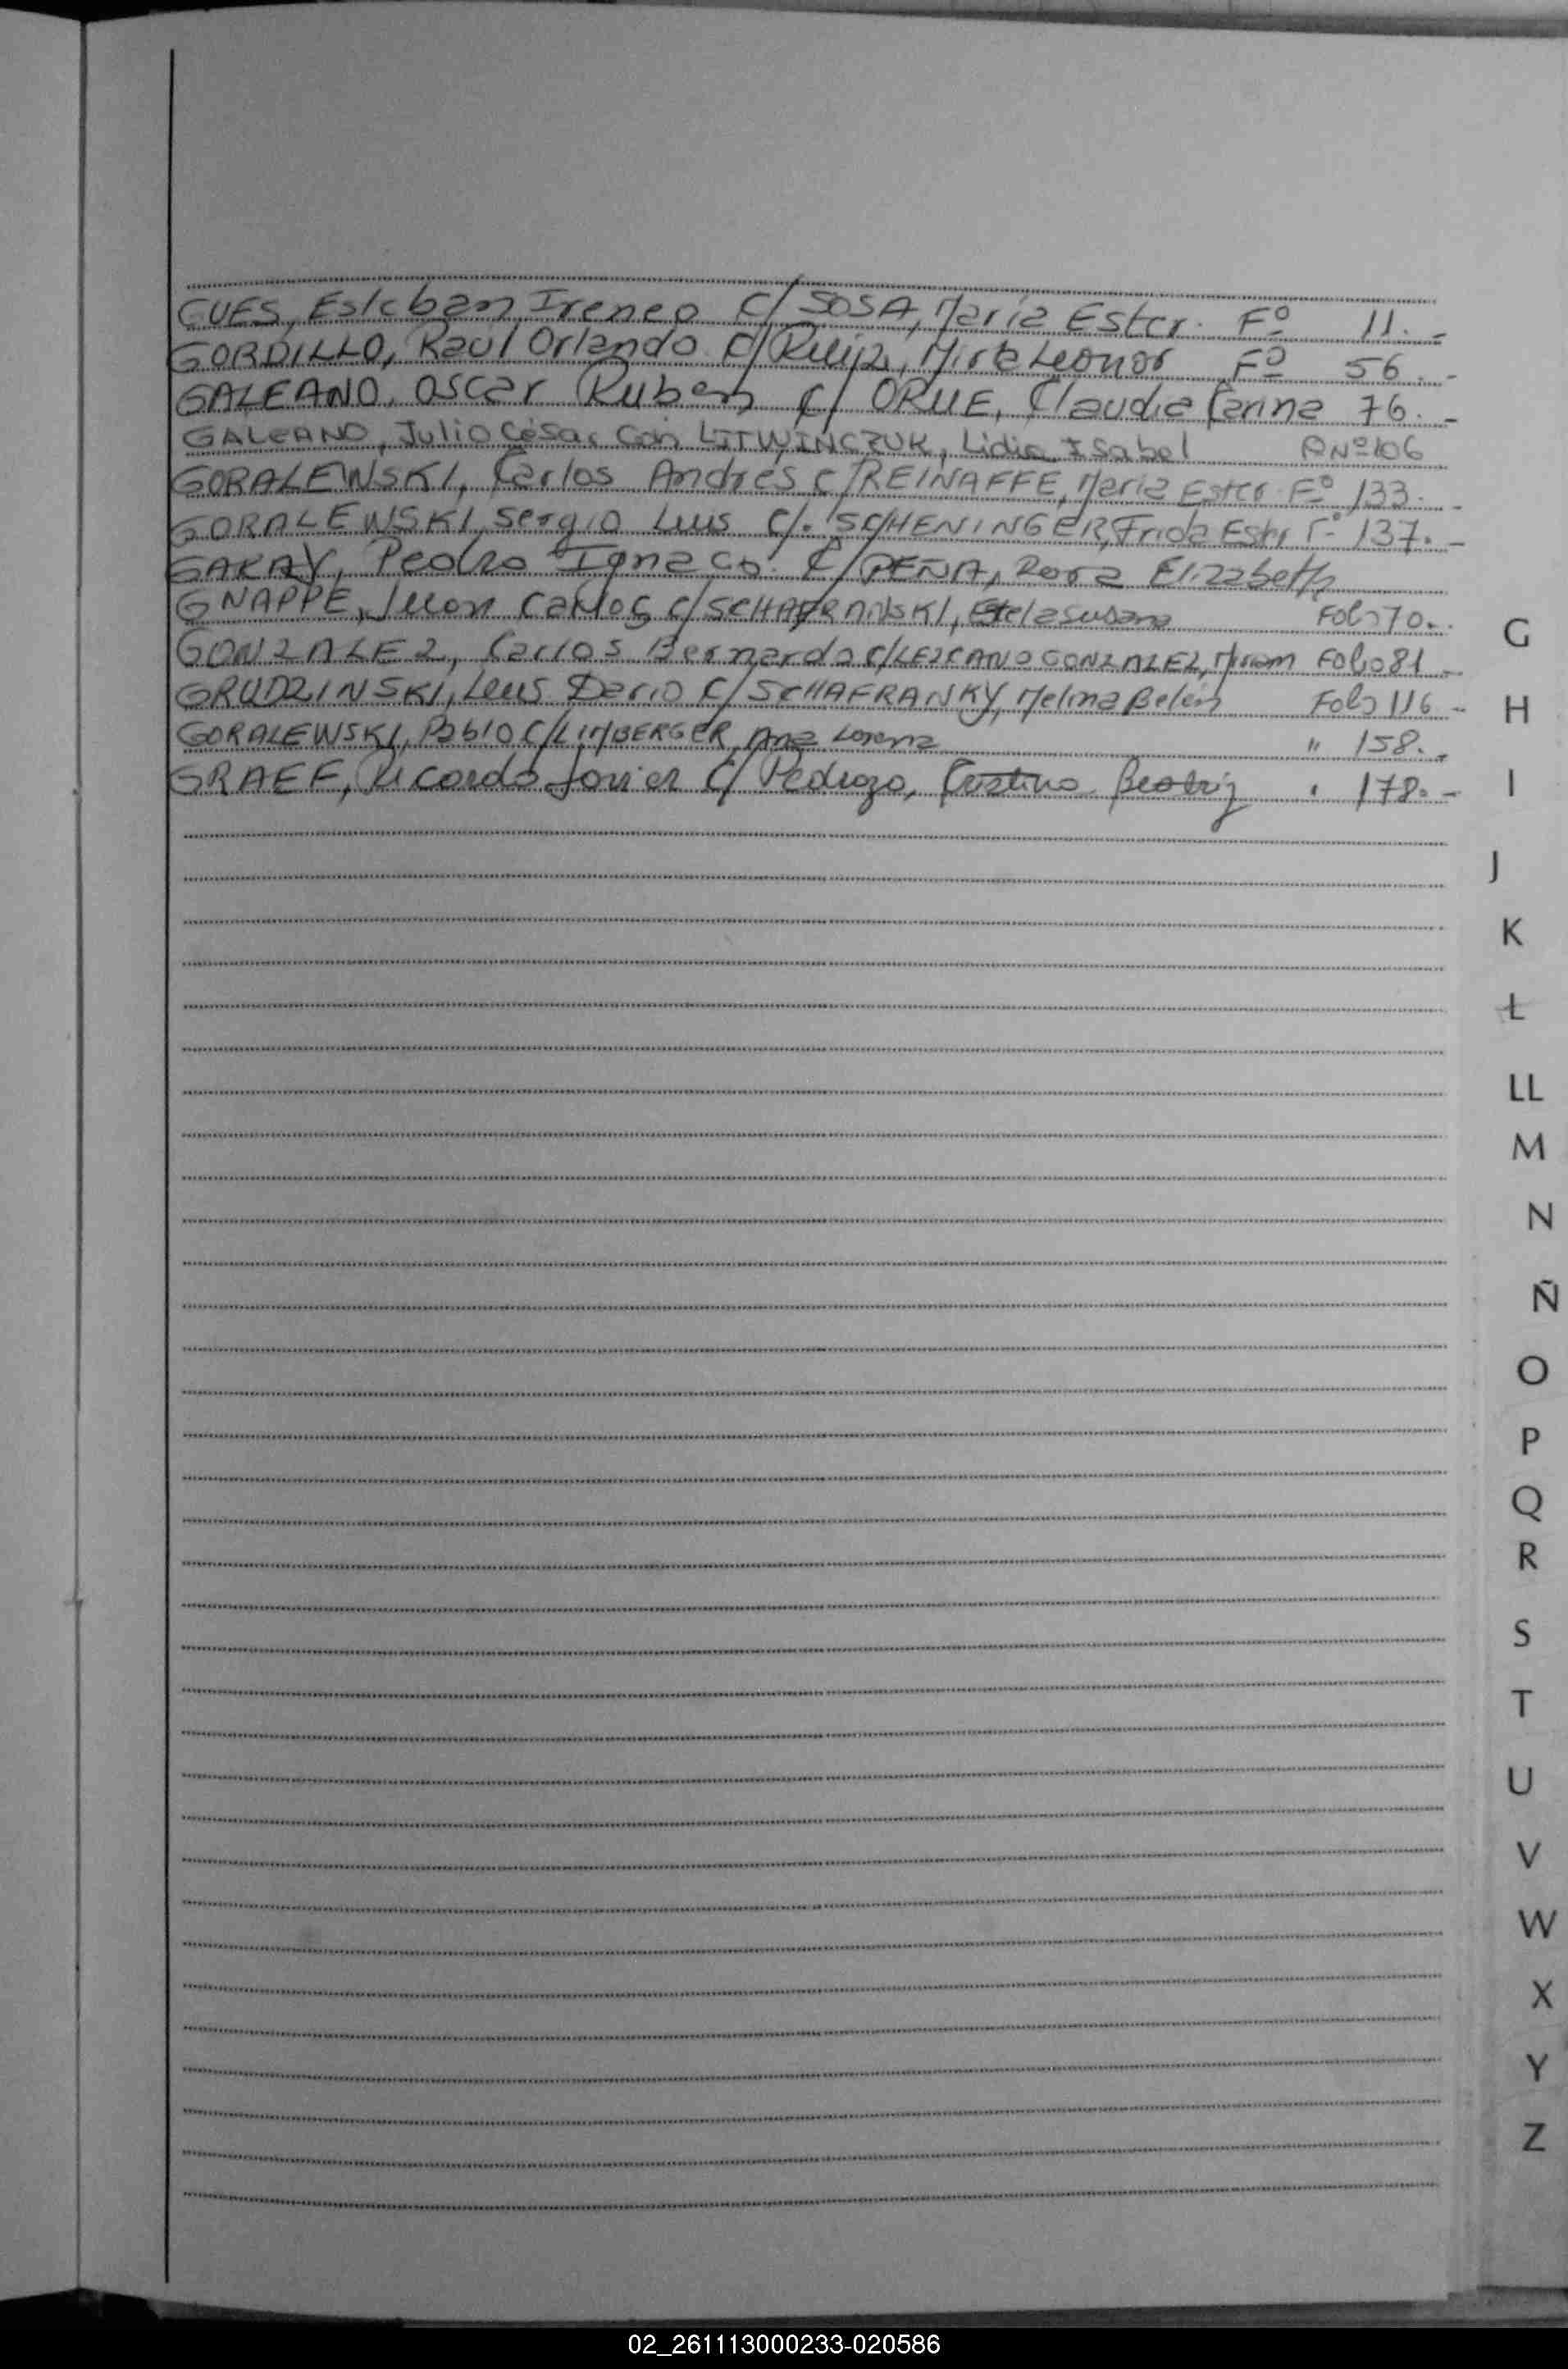 GUES, Esteban Ireneo c/ SOSA, María Ester. Fº 11.-
GORDILLO, Raul Orlando c/ Mirta Leonor Fº 56.-
GALEANO, Oscar Ruben c/ ORUE, Claudia Carina 76.-
GALEANO, Julio César Con LITWINCZUK, Lidia Isabel ANº106
GORALEWSKI, Carlos Andrés c/ REINAFFE, María Ester Fº 133.-
GORALEWSKI, Sergio Luis c/. SCHENINGER, Frida Ester Fº 137.-
GARAY, Pedro Ignacio. c/ PEÑA, Rosa Elizabeth
GNAPPE, Juan Carlos c/ SCHAFRANSKI, Estela Susana Folio 70..
GONZALEZ, Carlos Bernardo c/ LEZCANO GONZALEZ, Miriam Folio 81.-
GRUDZINSKI, Luis Dario c/ SCHAFRANKY, Melina Belén Folio 116.-
GORALEWSKI, Pablo c/ LIMBERGER, Ana Lorena " 158.-
GRAEF, Ricardo Javier c/ Pedrozo, Cristina Beatriz " 178.-
G
H
I
J
K
L
LL
M
N
Ñ
O
P
Q
R
S
T
U
V
W
X
Y
Z
02_261113000233-020586